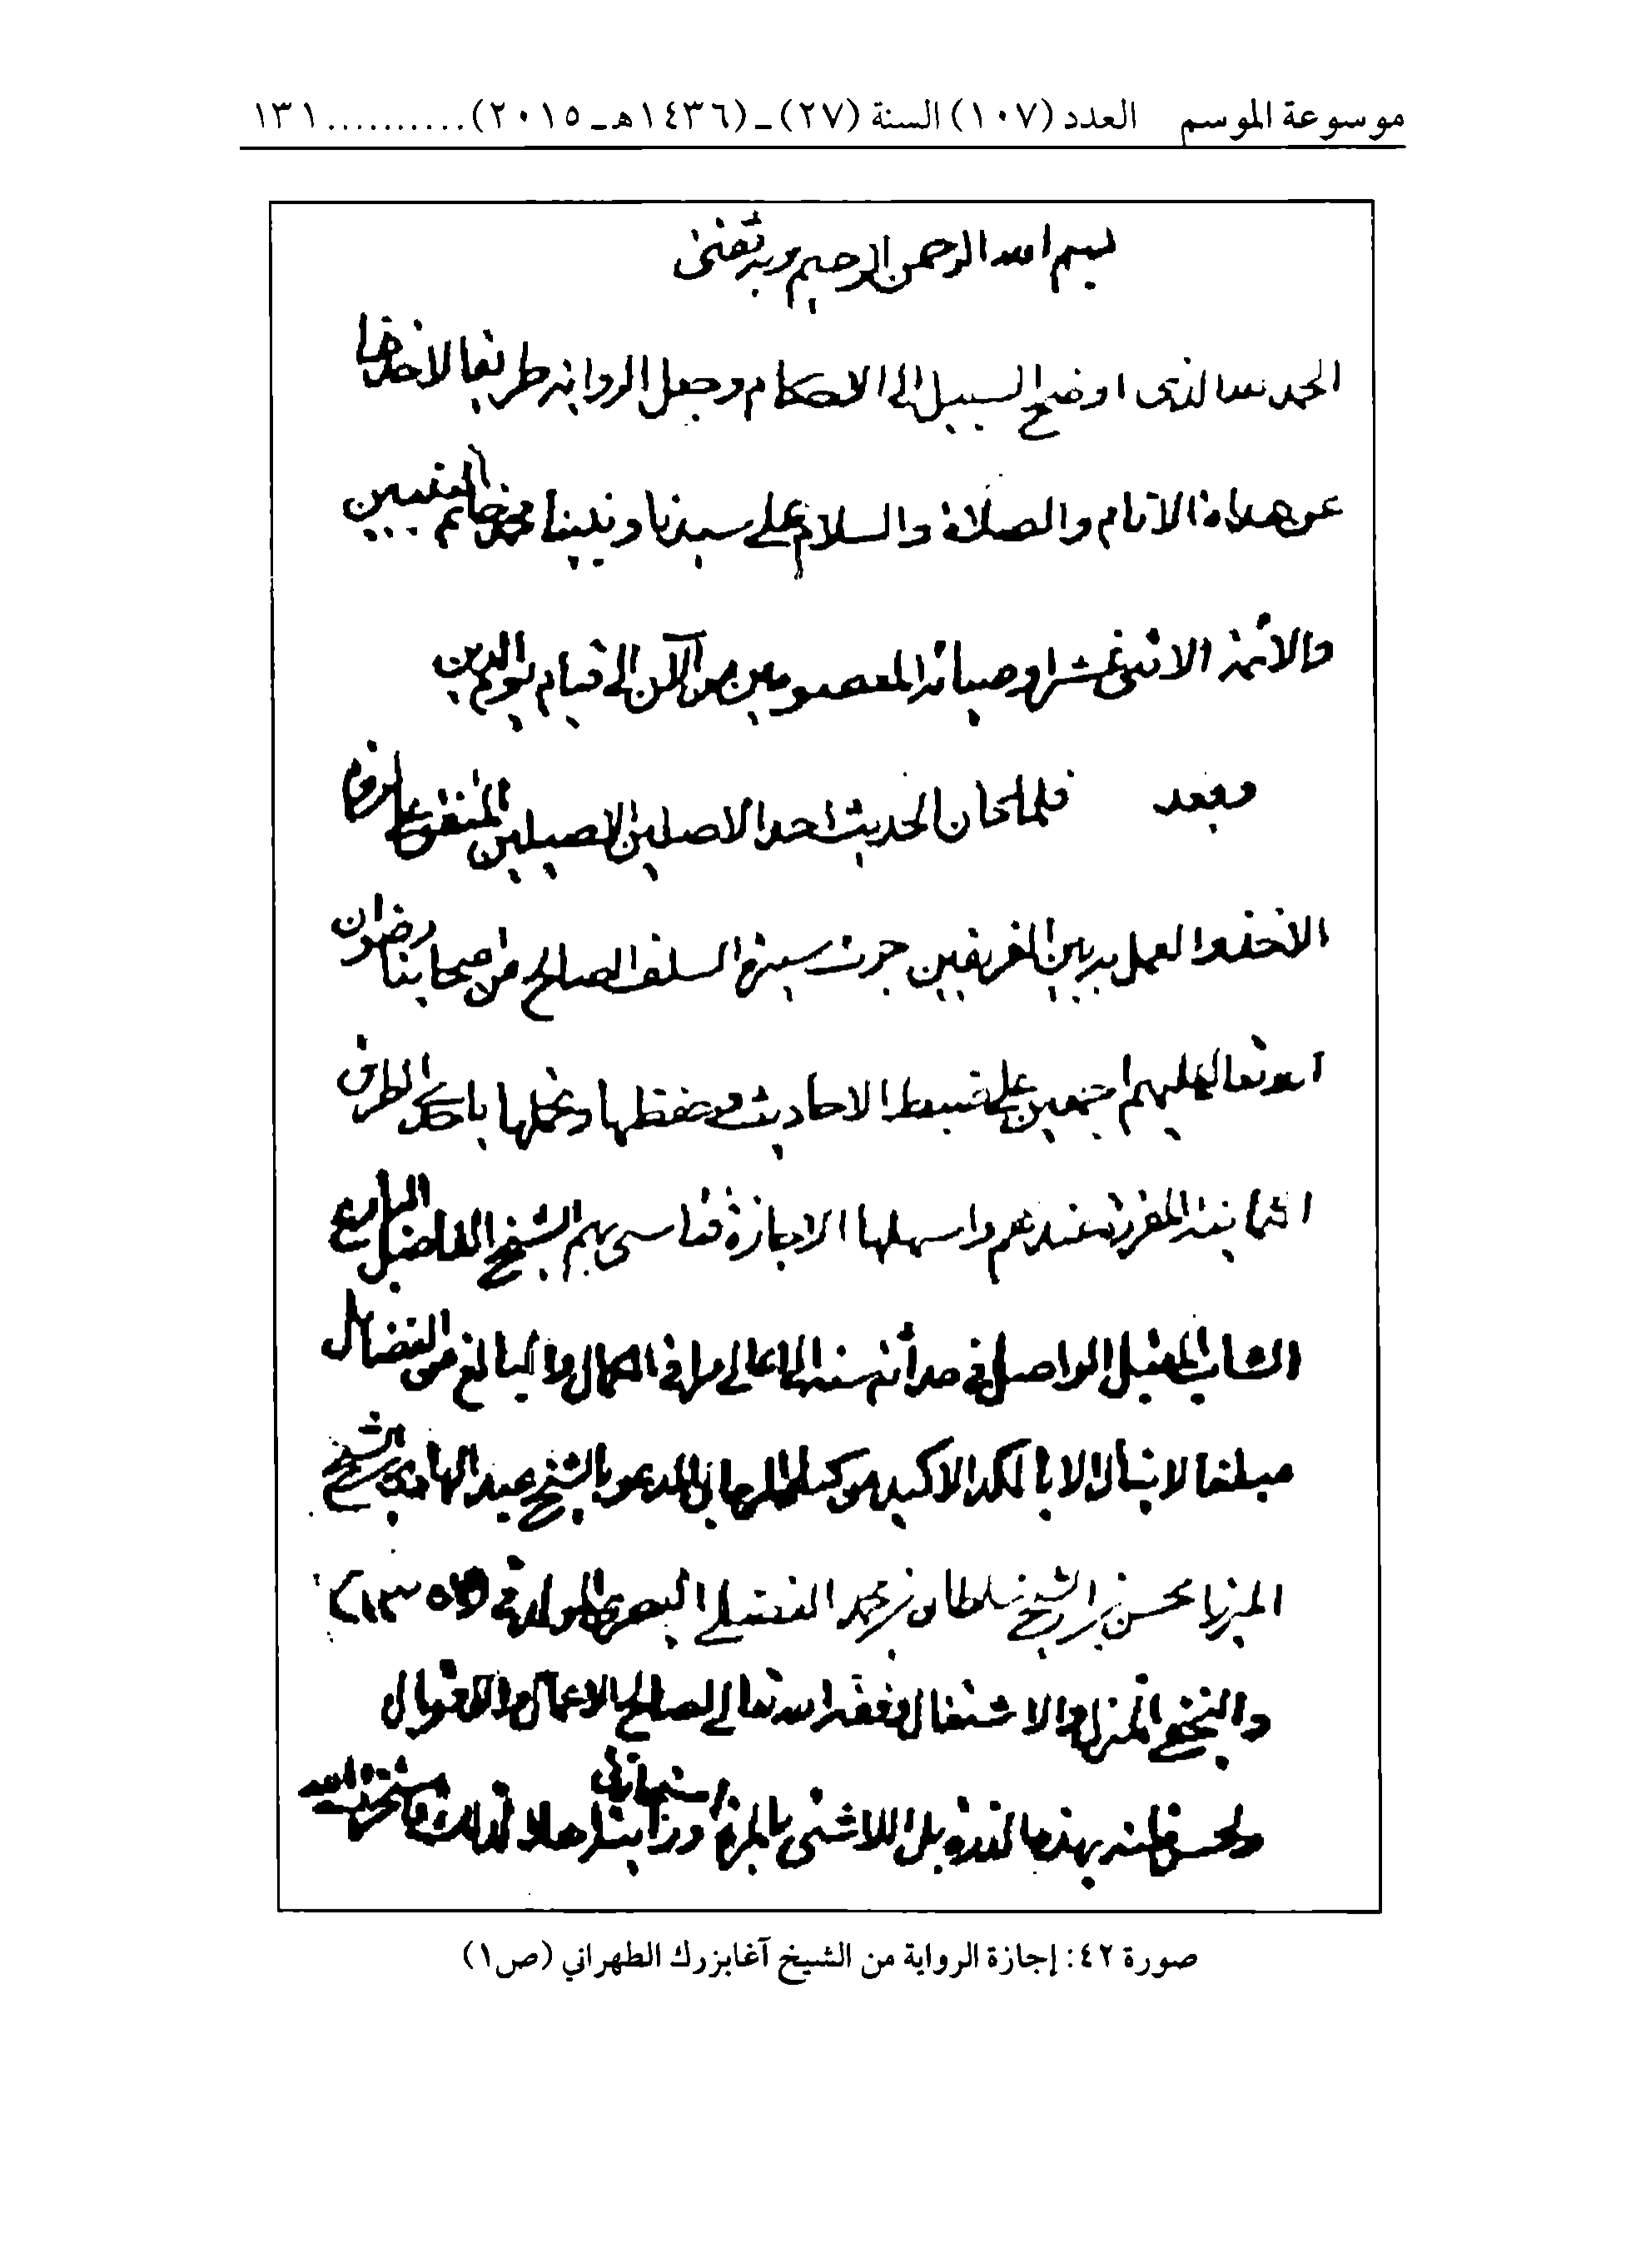 موسوعة الموسم العدد (١٠٧) السنة (٢٧) ـ (١٤٣٦هـ ـ ٢٠١٥) .......... ١٣١
بسم الله الرحمن الرحيم وبه ثقتى
الحمد لله الذى اوضح السبيل الى الاحكام وجعل الرواية طريقا لاخذها
عن هداة الانام والصلاة والسلام على سيدنا ونبينا محمد خاتم النبيين
والائمة الاثنى عشر اوصيائه المعصومين من الآن الى قيام يوم الدين
وبعد فلما كان الحديث احد الاصلين الاصيلين المتفق على لزوم
الاخذ والعمل به بين الفريقين جرت سيرة السلف الصالح من اصحابنا رضوان
الله تعالى عليهم اجمعين على ضبط الاحاديث وحفظها وتحملها باحدى الطرق
الثمانية المقررة عندهم واسهلها الاجازة فتأسى بهم الشيخ الفاضل البارع
الشاب المقبل الواصل في حداثة سنه الى اعالى مراقى الكمال والبالغ من الفضائل
مبلغا لا ينال الا بالكد الاكيد من كملة الرجال المدعو بالشيخ عبد الهادي بن الشيخ
الميرزا محسن بن الشيخ سلطان بن محمد الفضلى البصرى المولد في
والنجفى المنزل والاشتغال وفقه الله تعالى لصالح الاعمال والاقوال
ولحسن ظنه بهذا بل اللاشئى بالمرة استجازنى ورآنى اهلا لذلك فاستخرت الله
صورة ٤٢: إجازة الرواية من الشيخ آغابزرك الطهراني (ص١)